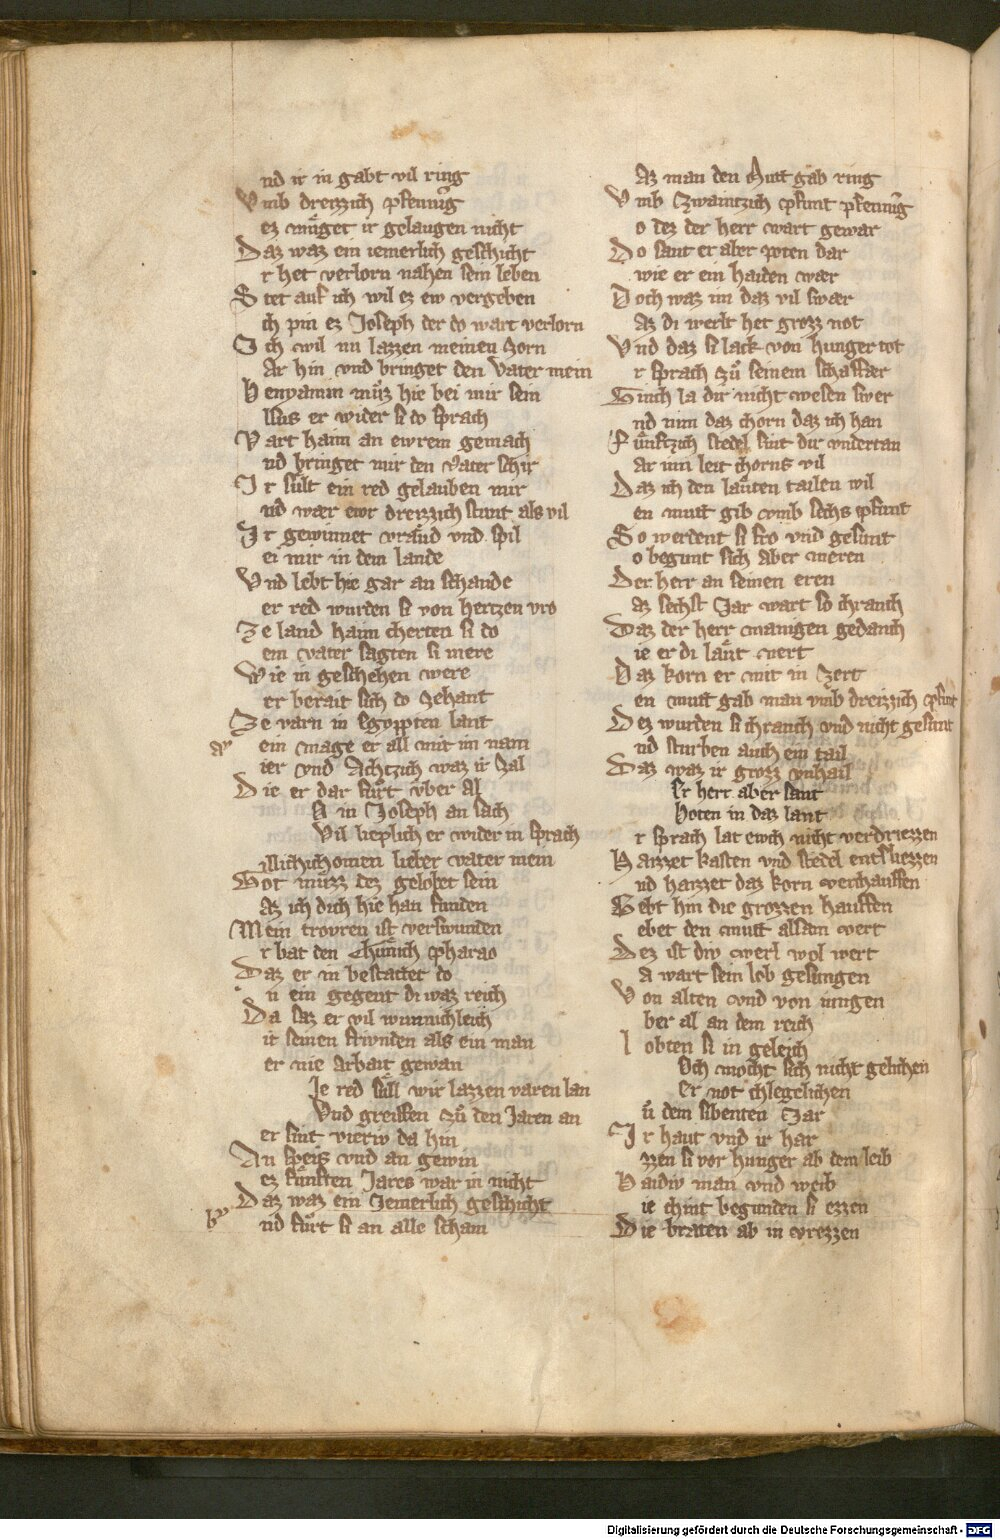 nd ir in gabt vil ring
Vmb dreizzich pfennig
ez muͤget ir gelaugen nicht
Daz waz ein iemerlich geschicht
r het verlorn nahen sein leben
Stet auf ich wil ez ew vergeben
ch pin ez Joseph der do wart verlorn
Ich wil nu lazzen meinen Zorn
ar hin vnd bringet den Vater mein
Benyamin muͤz hie bei mir sein
lsus er wider si do sprach
Vart haim an ewrem gemach
nd bringet mir den Vater schir
Ir suͤlt ein red gelauben mir
nd wær ewr dreizzich stunt als vil
Ir gewinnet vraͤud vnd spil
ei mir in dem lande
Vnd lebt hie gar an schande
er red wurden si von hertzen vro
Ze land haim cherten si do
em vater sagten si mere
Wie in geschehen were
er berait sich do Zehant
Ze varn in Egypten lant
ein mage er all mit im nam
ier vnd Achtzich waz ir Zal
Die er dar fuͤrt vber al
A in Joseph an sach
Vil lieplich er wider in sprach
illichchomen lieber vater mein
Got muͤzz dez gelobet sein
az ich dich hie han funden
Mein trovren ist verswunden
r bat den Chuͤnich pharao
Daz er in bestattet do
n ein gegent di waz reich
Da saz er vil wunnichleich
it seinen friwnden als ein man
er nie Arbait gewan
Ie red suͤll wir lazzen varen lan
Vnd greiffen zuͤ den Jaren an
er sint vieriv da hin
An speis vnd an gewin
ez fuͤnften Jares war in nicht
Daz waz ein Jemerlich geschicht
nd fuͤrt si an alle scham
az man den Mutt gab ring
Vmb Zwaintzich pfunt pfennig
o dez der herr wart gewar
Do sant er aber poten dar
wie er ein haiden wær
Doch waz im daz vil swær
az di werlt het grozz not
Vnd daz si lack von hunger tot
r sprach zuͤ seinem schaffær
Ginch la dir nicht wesen swer
nd nim daz chorn daz ich han
Fuͤnftzich stedel sint dir vndertan
ar inn leit chorns vil
Daz ich den laͤuten tailen wil
en mutt gib vmb sechs pfunt
So werdent si fro vnd gesunt
o begunt sich aber meren
Der herr an seinen eren
az sechst Jar wart so chranch
Daz der herr manigen gedanch
ie er di laͤut nert
Daz korn er mit in Zert
en mutt gab man vmb dreizzich pfunt
Dez wurden si chranch vnd nicht gesunt
nd sturben auch ein tail
Daz waz ir grozz vnhail
Er herr aber sant
Boten in daz lant
r sprach lat ewch nicht verdriezzen
Haizzet kasten vnd stedel entsliezzen
nd haizzet daz korn verchauffen
Gebt hin die grozzen hauffen
ebet den mutt allsam wert
Dez ist div werl wol wert
a wart sein lob gesungen
Von alten vnd von iungen
ber al an dem reich
lobten si in geleich
Och mocht sich nicht gelichen
Er not chlegelichen
uͤ dem sibenten Jar
Ir haut vnd ir har
zzen si vor hunger ab dem leib
Baidiv man vnd weib
ie chint begunden si ezzen
Die braten ab in vrezzen
Digitalisierung gefördert durch die Deutsche Forschungsgemeinschaft - DFG